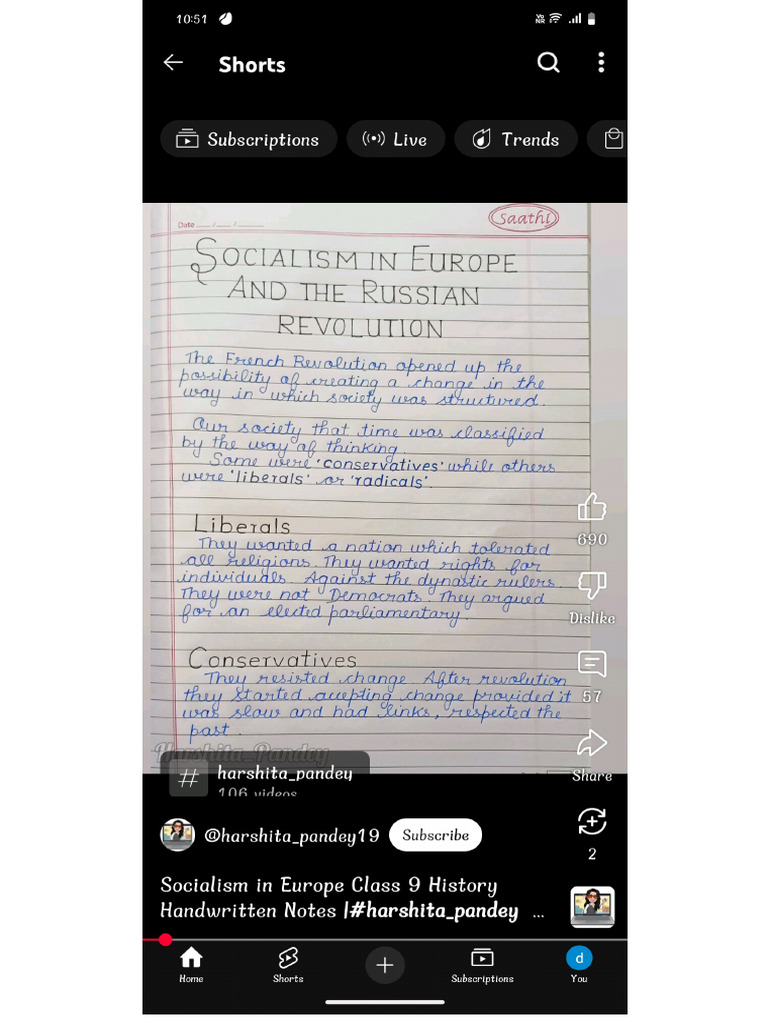 10:51
Vo
NR
Shorts
Subscriptions
Live
Trends
Date
Saathi
SOCIALISM IN EUROPE
AND THE RUSSIAN
REVOLUTION
The French Revolution opened up the
possibility of creating a change in the
way in which society was structured.
Our society that time was classified
by the way of thinking.
Some were 'conservatives' while others
were 'liberals' or 'radicals'.
Liberals
They wanted a nation which tolerated
all religions. They wanted rights for
individuals. Against the dynastic rulers.
They were not Democrats. They argued
for an elected parliamentary.
Conservatives
They resisted change. After revolution
they started accepting change provided it
was slow and had links, respected the
past.
Harshita_Pandey
690
Dislike
57
Share
2
#
harshita_pandey
106 videos
@harshita_pandey19
Subscribe
Socialism in Europe Class 9 History
Handwritten Notes |#harshita_pandey ...
Home
Shorts
Subscriptions
d
You